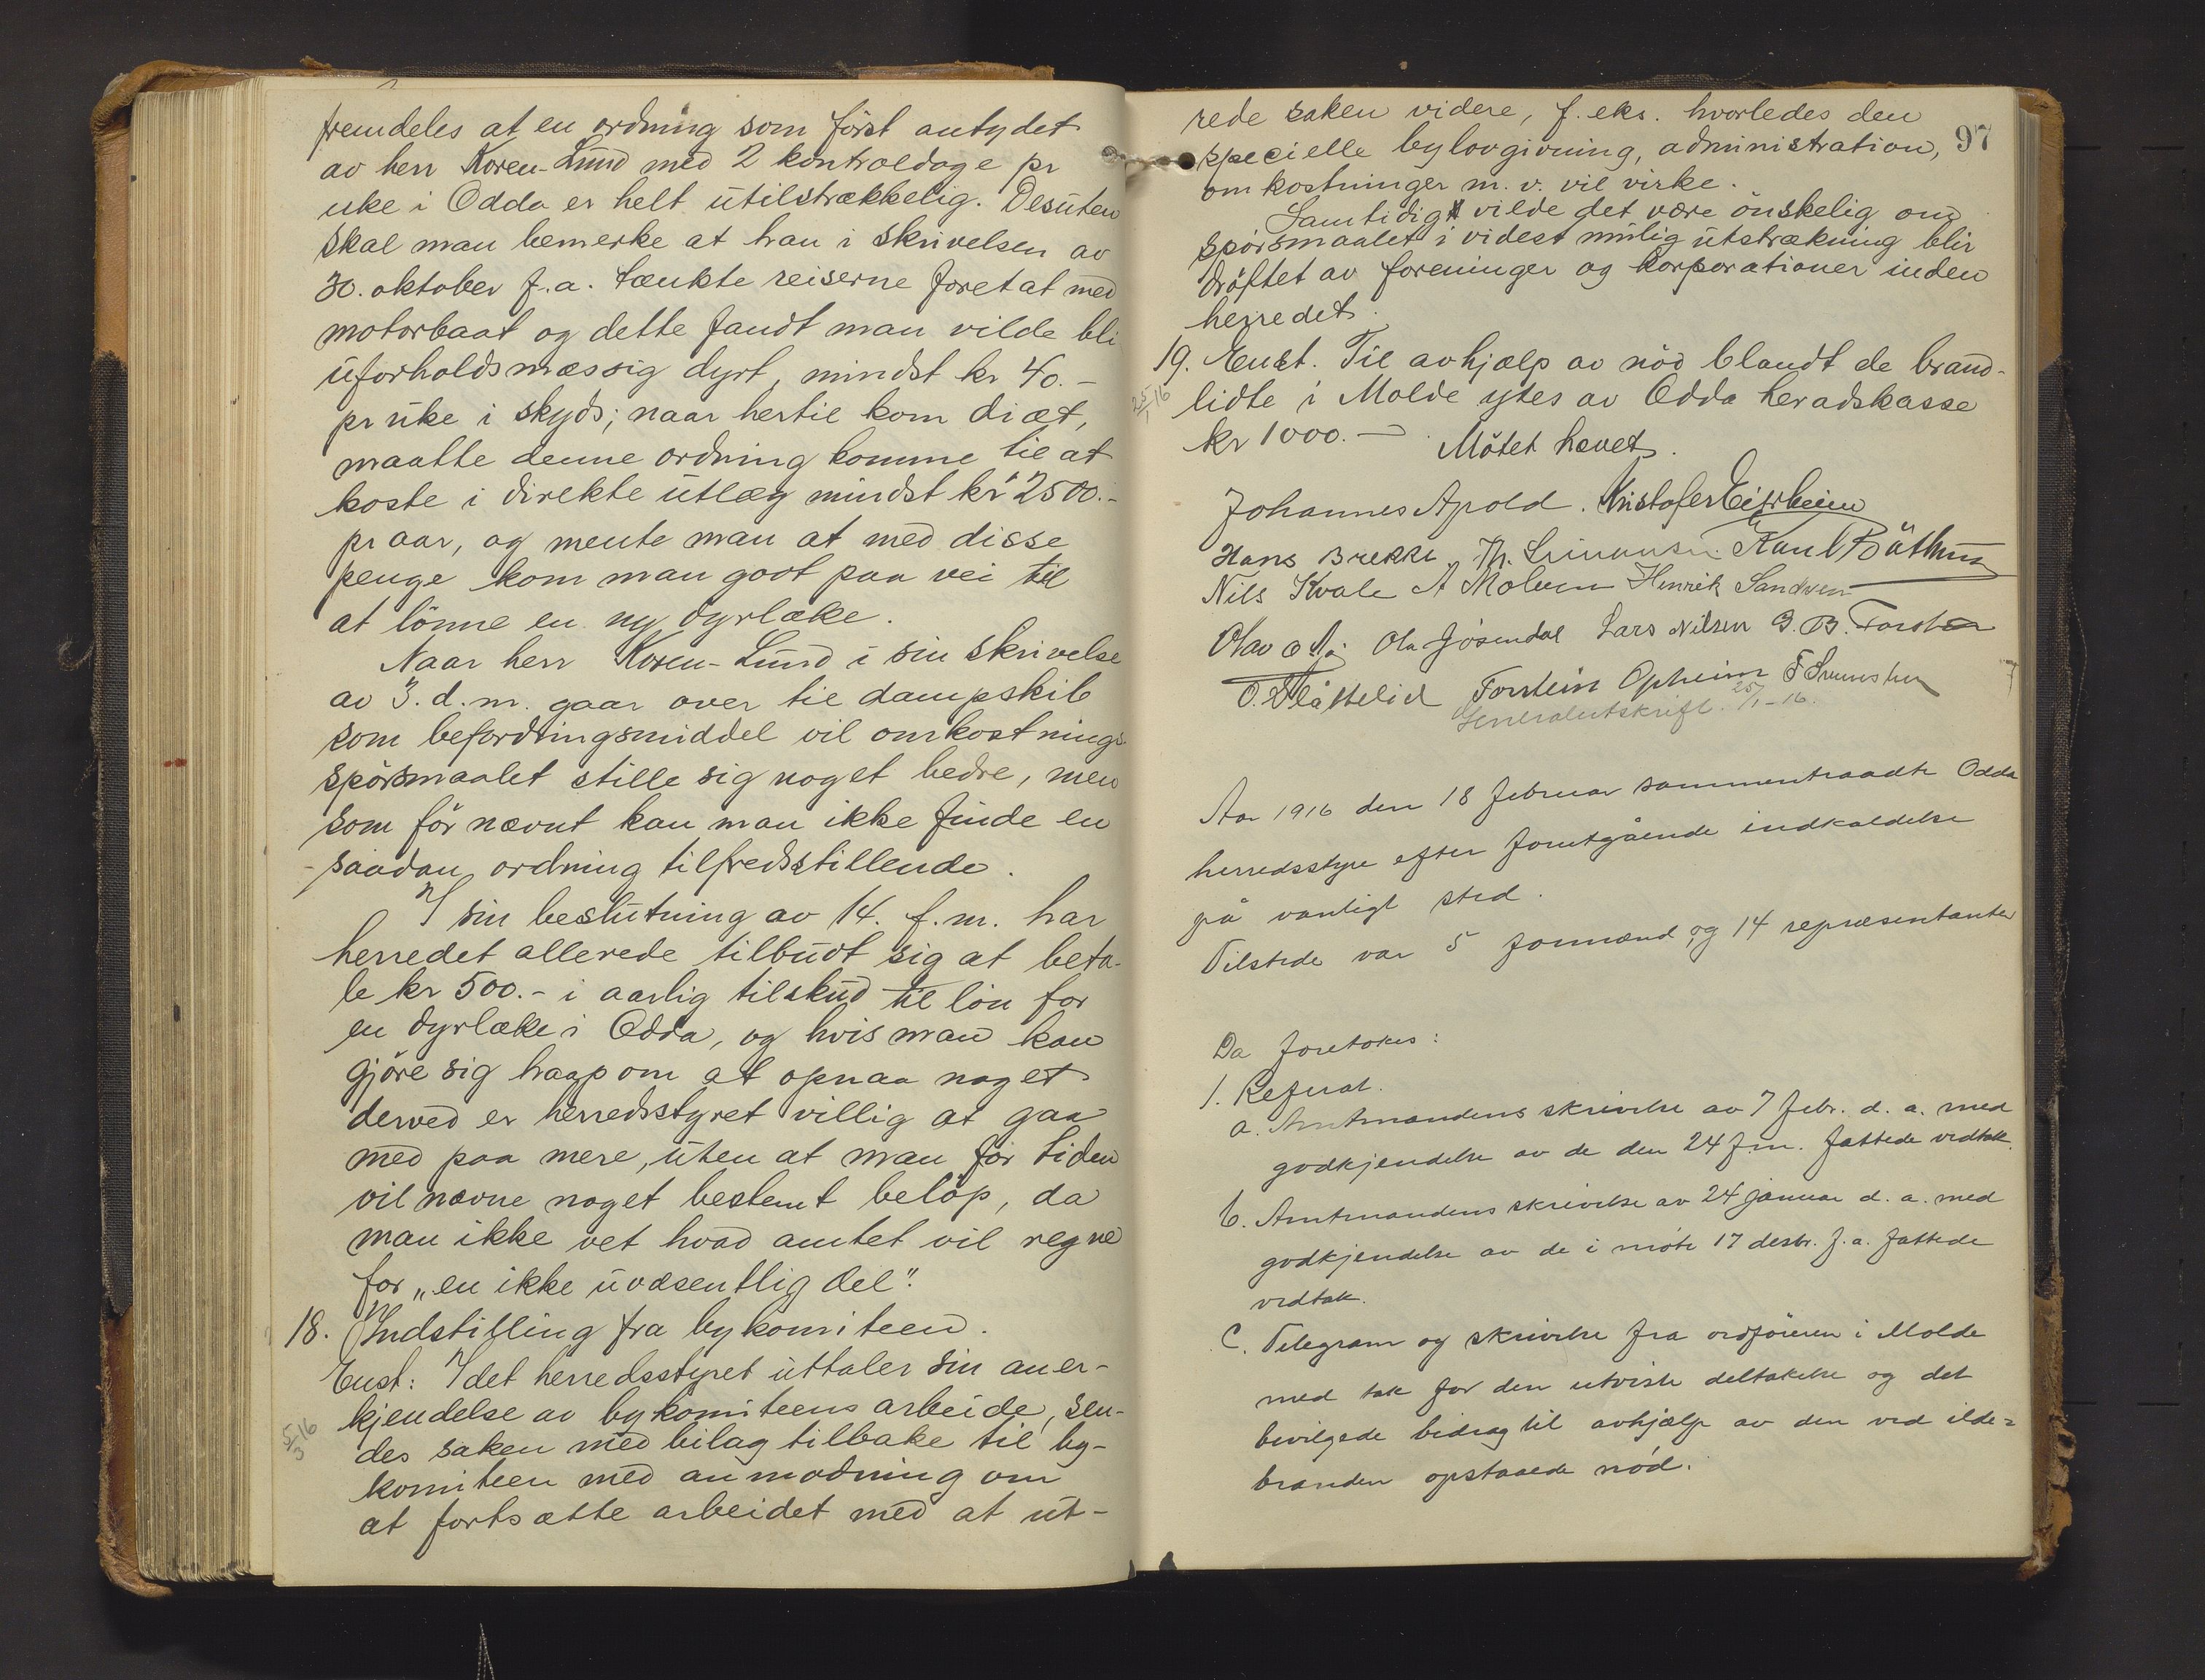 fremdeles at en ordning som först antydet
av herr Koren-Lund med 2 kontroldage pr
uke i Odda er helt utilstrækkelig. Desuten
skal man bemerke at han i skrivelsen av
30. oktober f.a. tænkte reiserne foretat med
motorbaat og dette fandt man vilde bli
uforholdsmæssig dyrt, mindst kr 40.-
pr uke i skyds; naar hertil kom diæt,
maatte denne ordning komme til at
koste i direkte utlæg mindst kr 2500.-
pr aar, og mente man at med disse
penge kom man godt paa vei til
at lönne en ny dyrlæke.
Naar herr Koren-Lund i sin skrivelse
av 3. d.m. gaar over til dampskib
som befordringsmiddel vil omkostnings-
spörsmaalet stille sig noget bedre, men
som för nævnt kan man ikke finde en
saadan ordning tilfredsstillende.
I sin beslutning av 14. f.m. har
herredet allerede tilbudt sig at beta-
le kr 500.- i aarlig tilskud til lön for
en dyrlæke i Odda, og hvis man kan
gjöre sig haap om at opnaa noget
derved er herredsstyret villig at gaa
med paa mere, uten at man för tiden
vil nævne noget bestemt belöp, da
man ikke vet hvad amtet vil regne
for „en ikke uvæsentlig del".
18. Indstilling fra bykomiteen.
Enst: Idet herredsstyret uttaler sin aner-
kjendelse av bykomiteens arbeide, sen-
5/3 16
des saken med bilag tilbake til by-
komiteen med anmodning om
at fortsætte arbeidet med at ut-
97
rede saken videre, f.eks. hvorledes den
specielle bylovgivning, administration,
omkostninger m.v. vil virke.
Samtidig vilde det være önskelig om
spörsmaalet i videst mulig utstrækning blir
dröftet av foreninger og korporationer inden
herredet.
19. Enst. Til avhjælp av nöd blandt de brand-
25/1 16
lidte i Molde ytes av Odda heradskasse
kr 1000.- Mötet hævet.
Johannes Apold. Kristofer Eitrheim
Hans Brekke Th. Karl
Nils Kvale A Molven Henrik Sandven
Olav Ola Jösendal Lars Nilsen G.B.
O. Flåttelid Torstein Opheim
Generalutskrift 25/1-16.
Aar 1916 den 18 februar sammentraadte Odda
herredsstyre efter forutgående indkaldelse
på vanligt sted.
Tilstede var 5 formænd og 14 repræsentanter
Da foretokes:
1. Referat.
a. Amtmandens skrivelse av 7 febr. d.a. med
godkjendelse av de den 24 f.m. fattede vedtak.
b. Amtmandens skrivelse av 24 januar d.a. med
godkjendelse av de i möte 17 desbr. f.a. fattede
vedtak.
C. Telegram og skrivelse fra ordföreren i Molde
med tak for den utviste deltakelse og det
bevilgede bidrag til avhjælp av den ved ilde=
branden opstaaede nöd.